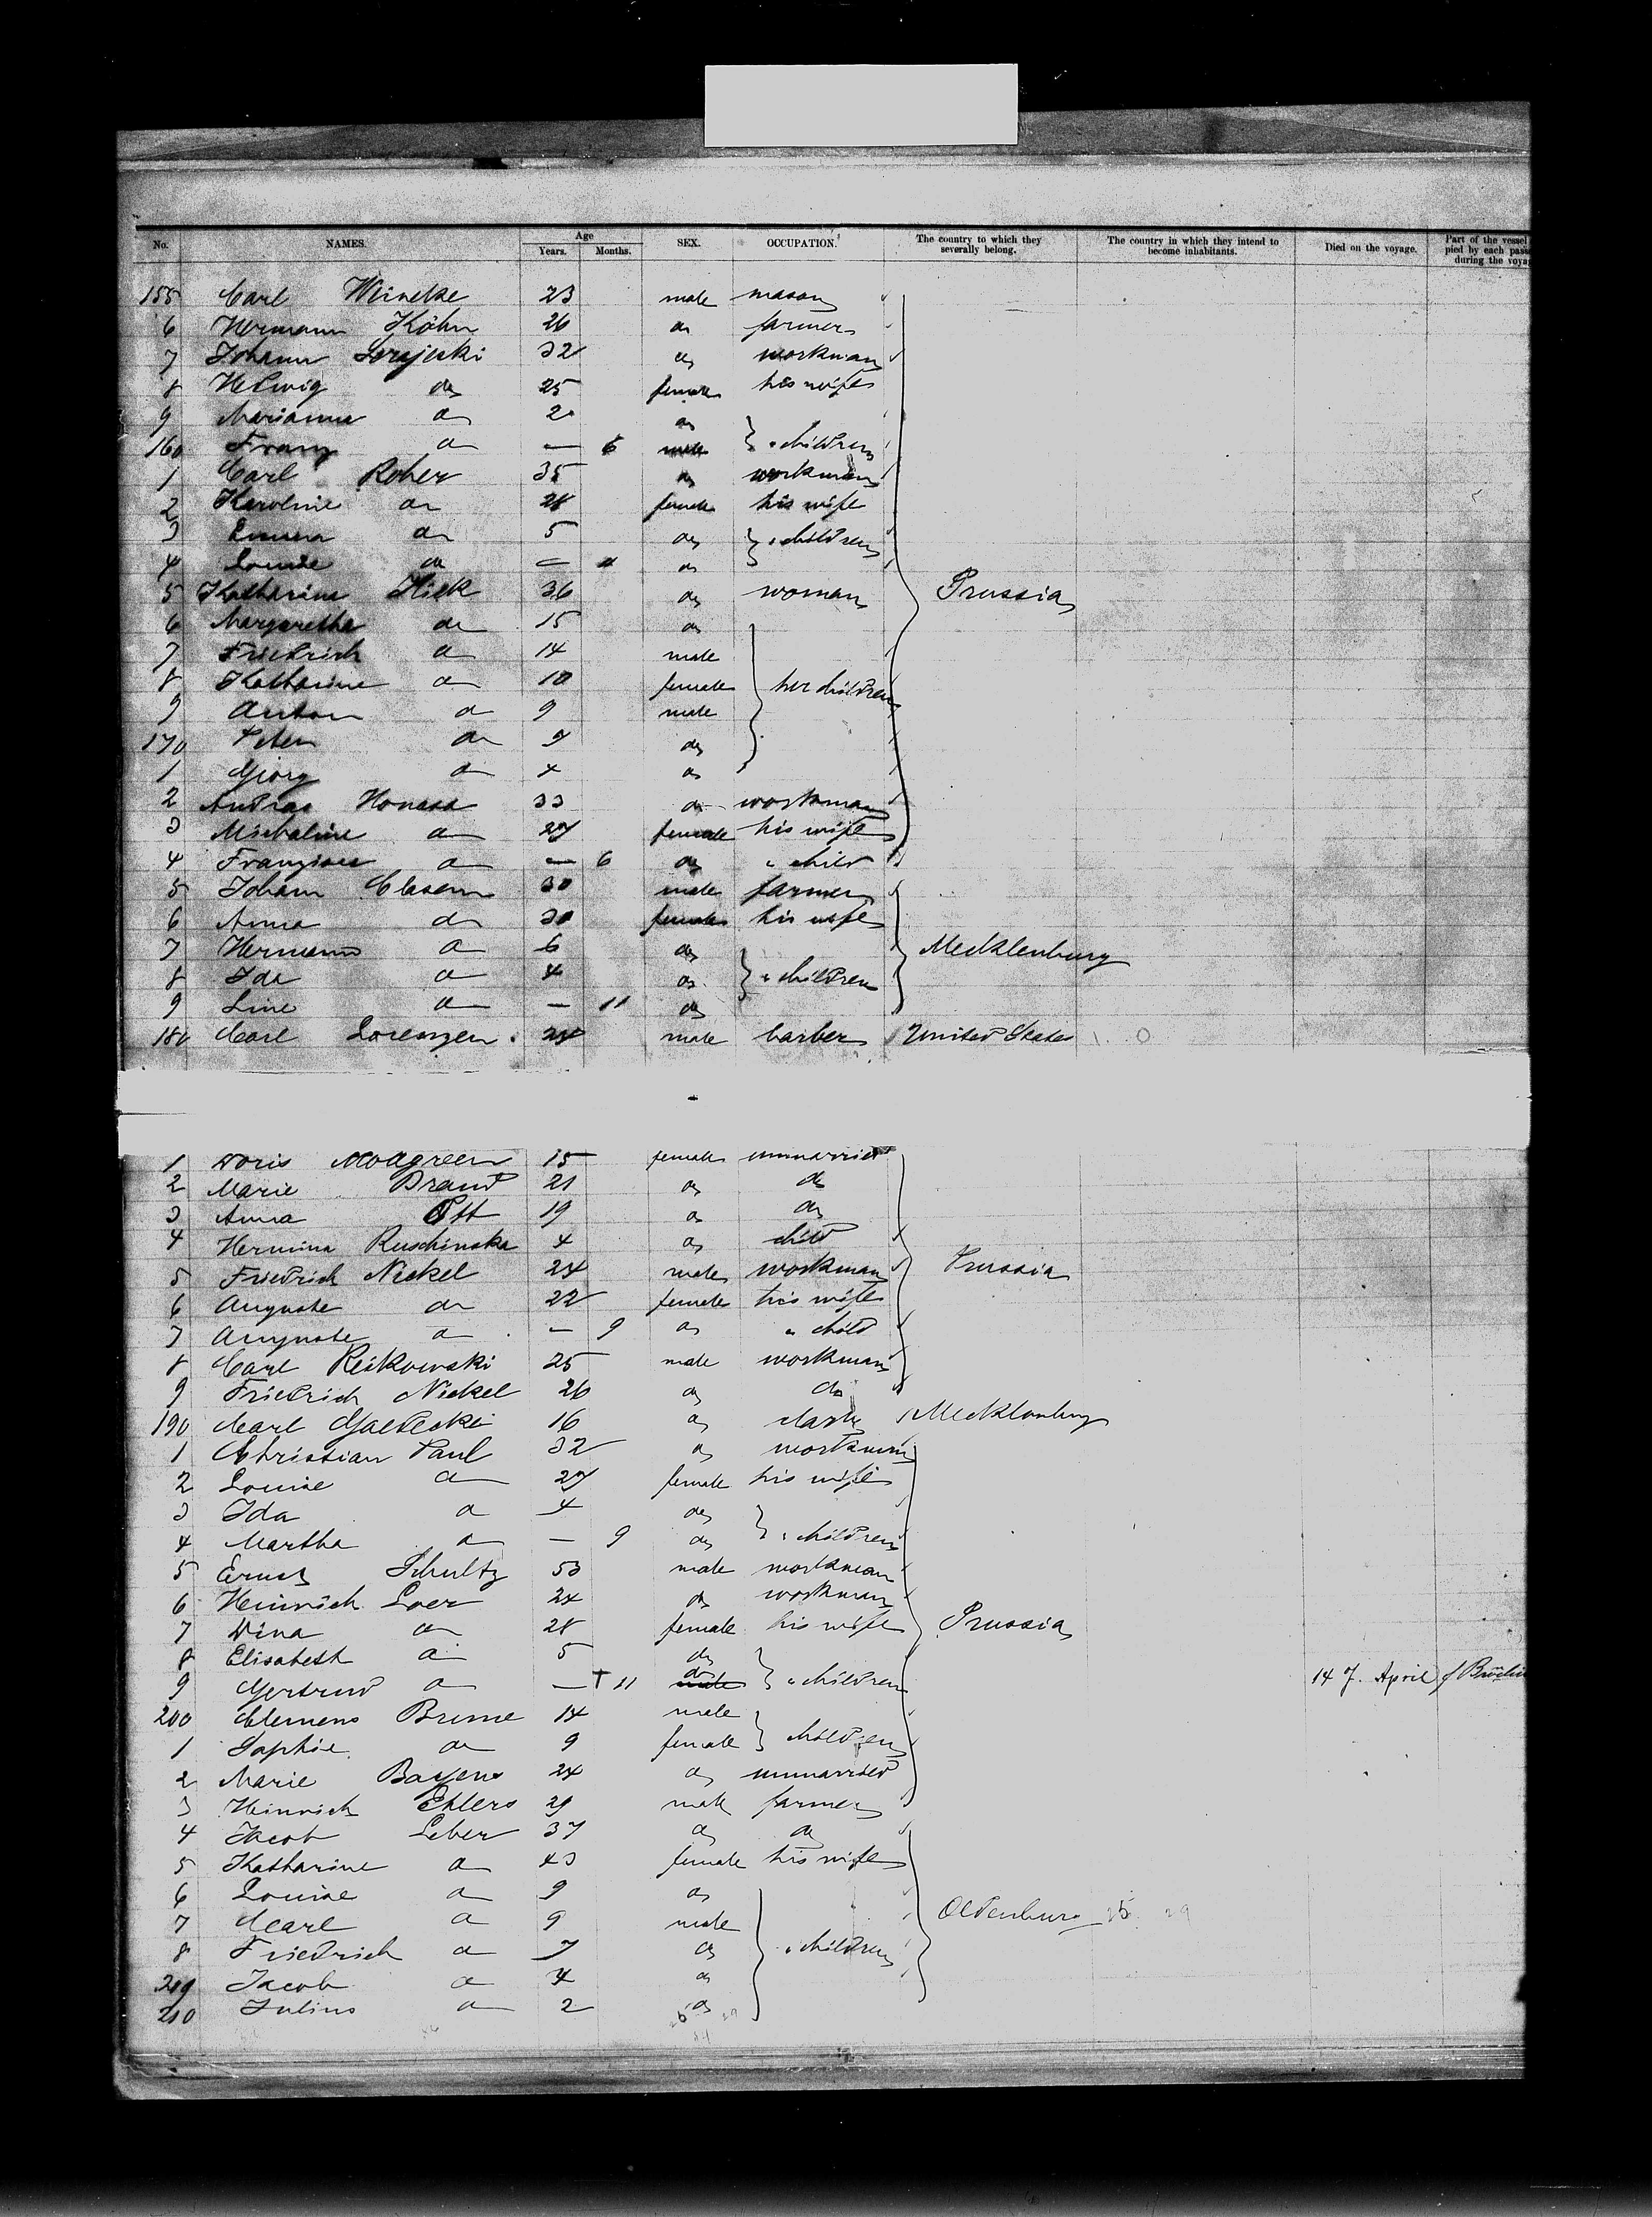 No. NAMES. Age Years. Months. SEX. OCCUPATION. The country to which they severally belong. The country in which they intend to become inhabitants. Died on the voyage. Part of the vessel pied by each pass during the voya
155 Carl 23 male mason
6 Hermann Köhn 26 do farmer
7 Johann 32 do workman
8 Hedwig do 25 female his wife
9 Marianna do 2 do
160 Franz do — 6 male " children
1 Carl Roher 35 do workman
2 Karoline do 28 female his wife
3 Emma do 5 do " children
4 Louise do — do
5 Katharina 36 do woman Prussia
6 Margaretha do 15 do
7 Friedrich do 14 male
8 Katharine do 10 female her children
9 Anton do 9 male
170 Peter do 9 do
1 Georg do 4 do
2 Andras 33 do workman
3 Michaline do 27 female his wife
4 do — 6 do " child
5 Johann Clasen 30 male farmer
6 Anna do 30 female his wife
7 Hermann do 6 do Mecklenburg
8 Ida do 4 do " children
9 Line do — 11 do
180 Carl Lorenzen 24 male barber United States
1 Doris 15 female unmarried
2 Marie Brand 21 do do
3 Anna Ott 19 do do
4 Hermina Ruschinska 4 do child
5 Friedrich Nickel 24 male workman Prussia
6 Auguste do 22 female his wife
7 Auguste do — 9 do " child
8 Carl Reikowski 25 male workman
9 Friedrich Nickel 26 do do
190 Carl 16 do Mecklenburg
1 Christian Paul 32 do workman
2 Louise do 27 female his wife
3 Ida do 4 do
4 Martha do — 9 do " children
5 Ernst Schultz 53 male workman
6 Heinrich Loer 24 do workman
7 Dina do 28 female his wife Prussia
8 Elisabeth do 5 do
9 Gertrud do — † 11 do " children 14 7. April
200 Clemens Brune 14 male
1 Sophie do 9 female children
2 Marie 24 do unmarried
3 Heinrich Ehlers 29 male farmer
4 Jacob Leber 37 do do
5 Katharine do 43 female his wife
6 Louise do 9 do
7 Carl do 9 male Oldenburg
8 Friedrich do 7 do " children
209 Jacob do 4 do
210 Julius do 2 do